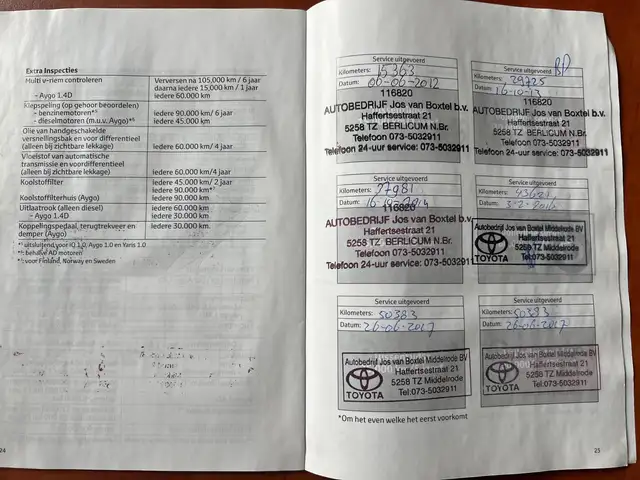 Extra Inspecties
Multi v-riem controleren
Verversen na 105,000 km / 6 jaar
daarna iedere 15,000 km / 1 jaar
– Aygo 1.4D
iedere 60.000 km
Klepspeling (op gehoor beoordelen)
– benzinemotoren*¹
iedere 90.000 km / 6 jaar
– dieselmotoren (m.u.v. Aygo)*²
iedere 45.000 km
Olie van handgeschakelde
versnellingsbak en voor differentieel
(alleen bij zichtbare lekkage)
iedere 60.000 km / 4 jaar
Vloeistof van automatische
transmissie en voordifferentieel
(alleen bij zichtbare lekkage)
iedere 60.000 km/4 jaar
Koolstoffilter
iedere 45.000 km / 2 jaar
iedere 90.000 km*³
Koolstoffilterhuis (Aygo)
iedere 90.000 km
Uitlaatrook (alleen diesel)
iedere 60.000 km
– Aygo 1.4D
iedere 30.000 km
Koppelingspedaal, terugtrekveer en
demper (Aygo)
iedere 30.000 km
*¹ uitsluitend voor iQ 1.0, Aygo 1.0 en Yaris 1.0
*² behalve AD motoren
*³ voor Finland, Norway en Sweden
24
Service uitgevoerd
Kilometers: 15363
Datum: 06-06-2012
116820
AUTOBEDRIJF Jos van Boxtel b.v.
Haffertsestraat 21
5258 TZ BERLICUM N.Br.
Telefoon 073-5032911
Telefoon 24-uur service: 073-5032911
Service uitgevoerd
Kilometers: 29725
Datum: 16-10-13
116820
AUTOBEDRIJF Jos van Boxtel b.v.
Haffertsestraat 21
5258 TZ BERLICUM N.Br.
Telefoon 073-5032911
Telefoon 24-uur service: 073-5032911
Service uitgevoerd
Kilometers: 37981
Datum:
116820
AUTOBEDRIJF Jos van Boxtel b.v.
Haffertsestraat 21
5258 TZ BERLICUM N.Br.
Telefoon 073-5032911
Telefoon 24-uur service: 073-5032911
Service uitgevoerd
Kilometers:
Datum: 3-2-2016
Autobedrijf Jos van Boxtel Middelrode BV
Haffertsestraat 21
5258 TZ Middelrode
Tel:073-5032911
TOYOTA
Service uitgevoerd
Kilometers: 50383
Datum: 26-06-2017
Autobedrijf Jos van Boxtel Middelrode BV
Haffertsestraat 21
5258 TZ Middelrode
Tel:073-5032911
TOYOTA
Service uitgevoerd
Kilometers: 50383
Datum: 26-06-2017
Autobedrijf Jos van Boxtel Middelrode BV
Haffertsestraat 21
5258 TZ Middelrode
Tel:073-5032911
TOYOTA
*Om het even welke het eerst voorkomt
25